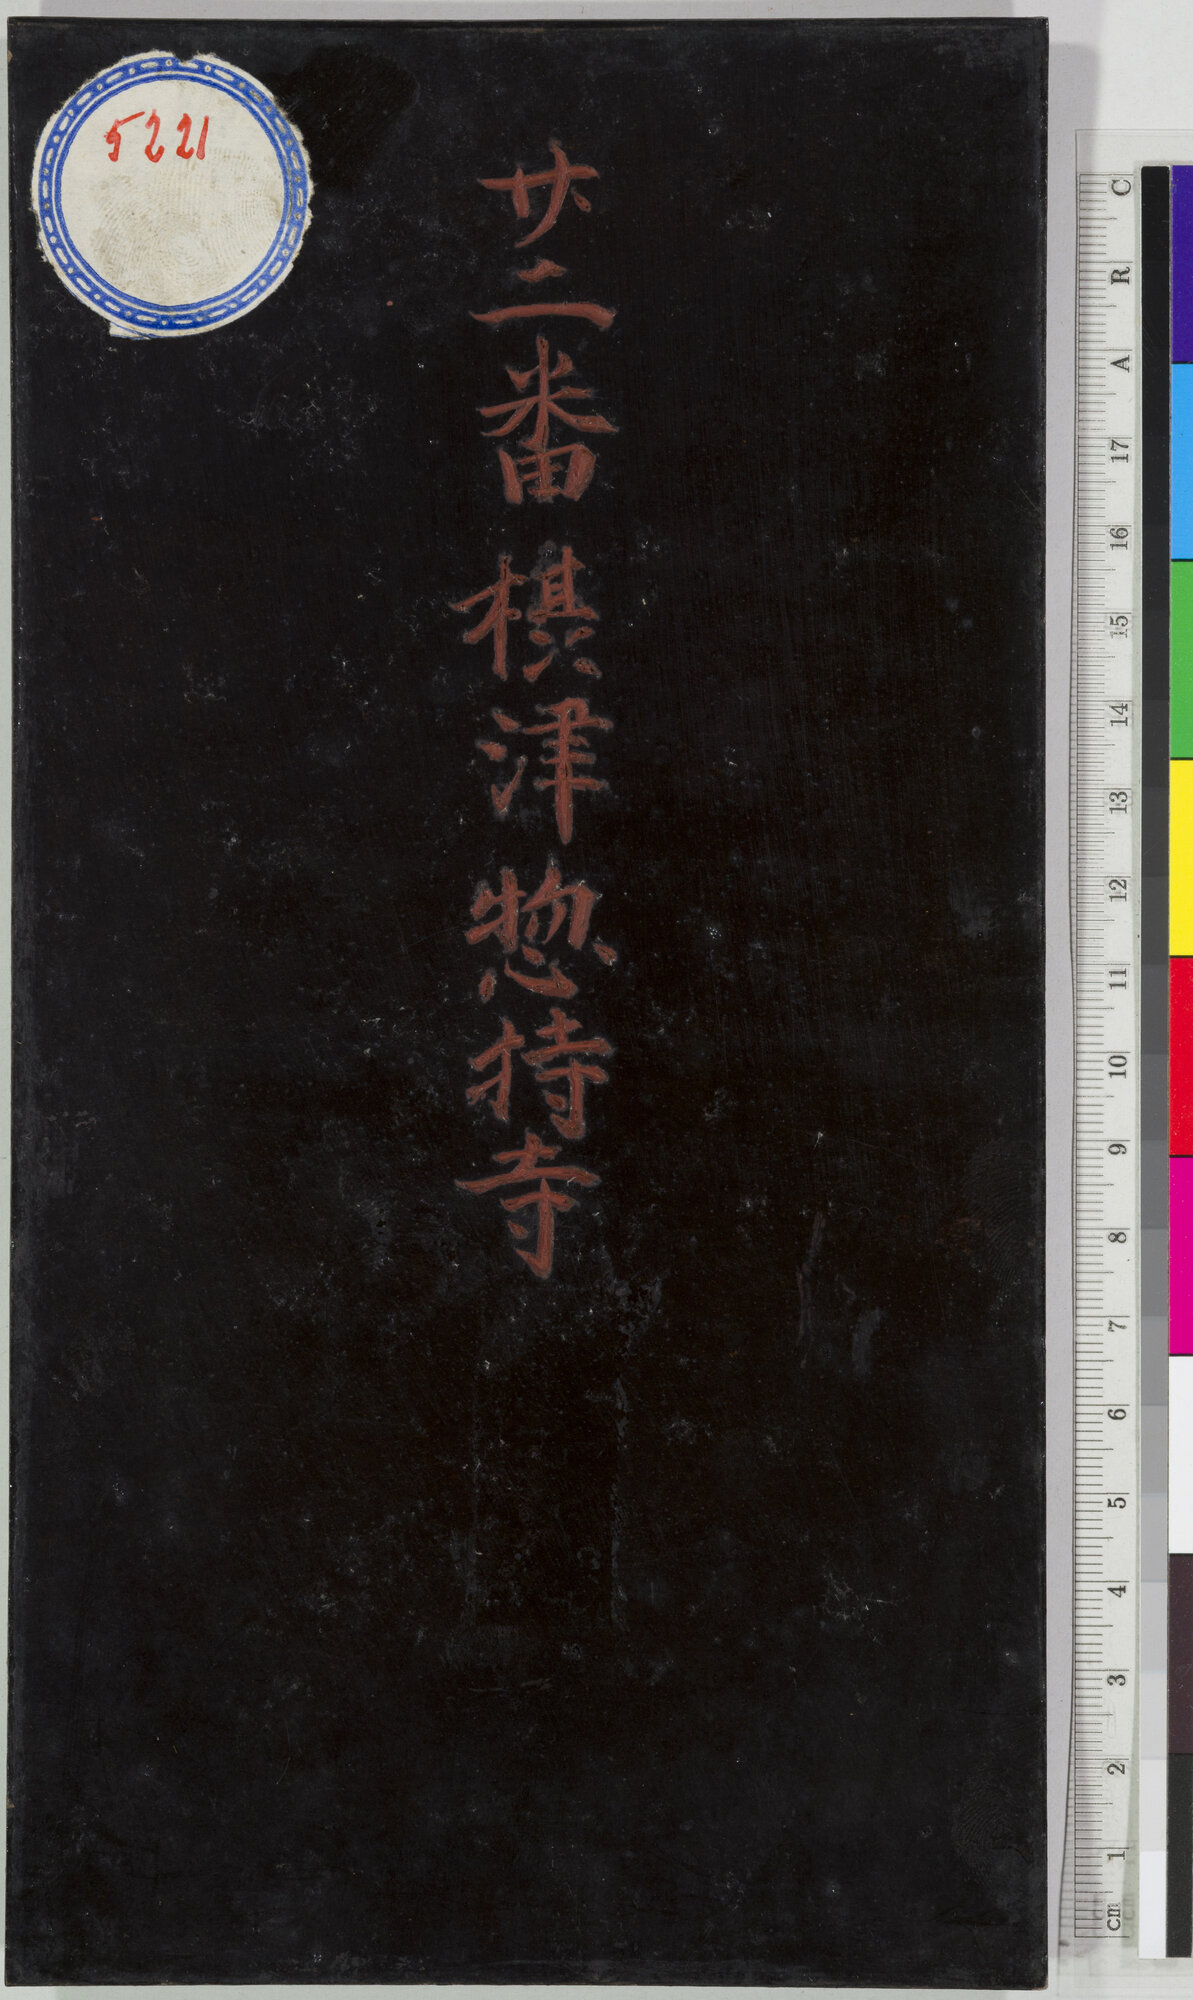 5221
廿二番 棋津惣持寺
C R A 17 16 15 14 13 12 11 10 9 8 7 6 5 4 3 2 1 cm